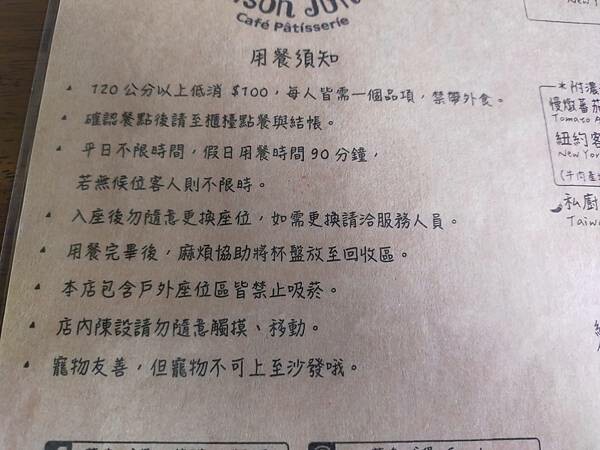 Café Pâtisserie
用餐須知
120公分以上低消 $100，每人皆需一個品項，禁帶外食。
確認餐點後請至櫃檯點餐與結帳。
平日不限時間，假日用餐時間90分鐘，
若無候位客人則不限時。
入座後勿隨意更換座位，如需更換請洽服務人員。
用餐完畢後，麻煩協助將杯盤放至回收區。
本店包含戶外座位區皆禁止吸菸。
店內陳設請勿隨意觸摸、移動。
寵物友善，但寵物不可上至沙發哦。
*附濃
慢燉番茄
Tomato
紐約客
New York
(牛肉產
私廚
Taiwa